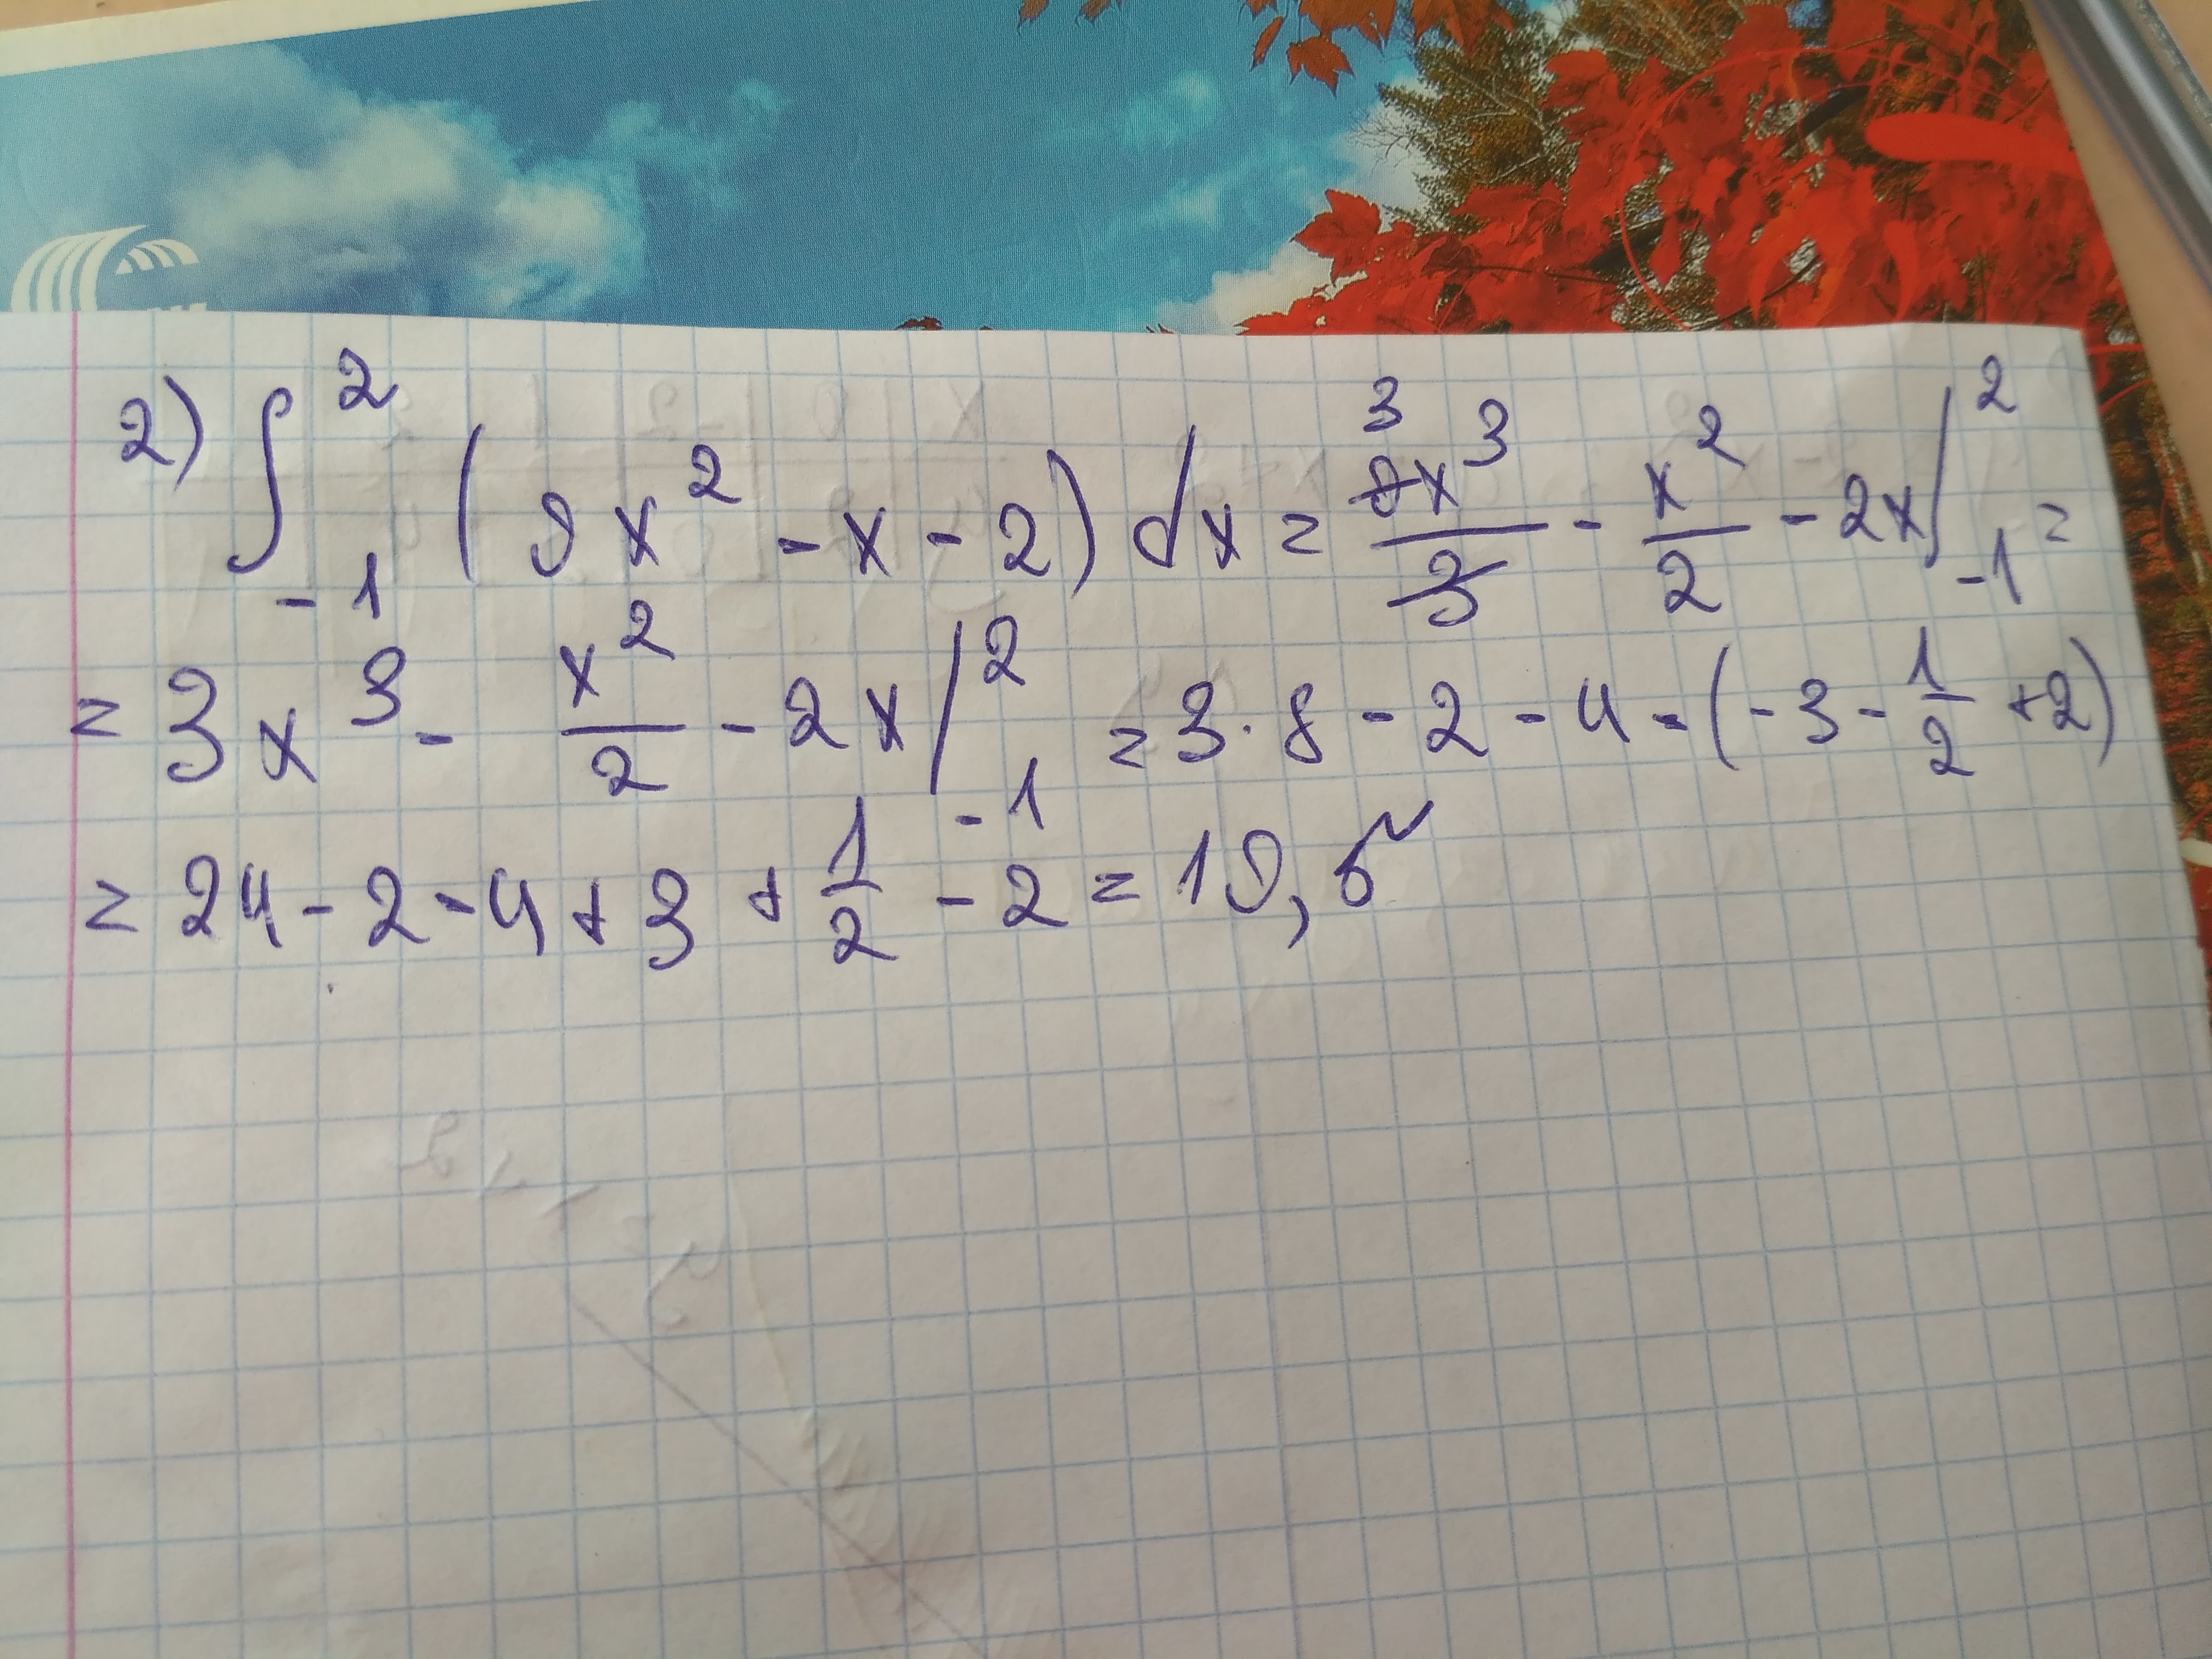 2) ∫_{-1}^{2} (9x² - x - 2) dx = 9x³/3 - x²/2 - 2x |_{-1}^{2} =
= 3x³ - x²/2 - 2x |_{-1}^{2} = 3·8 - 2 - 4 - (-3 - 1/2 + 2)
= 24 - 2 - 4 + 3 + 1/2 - 2 = 19,5